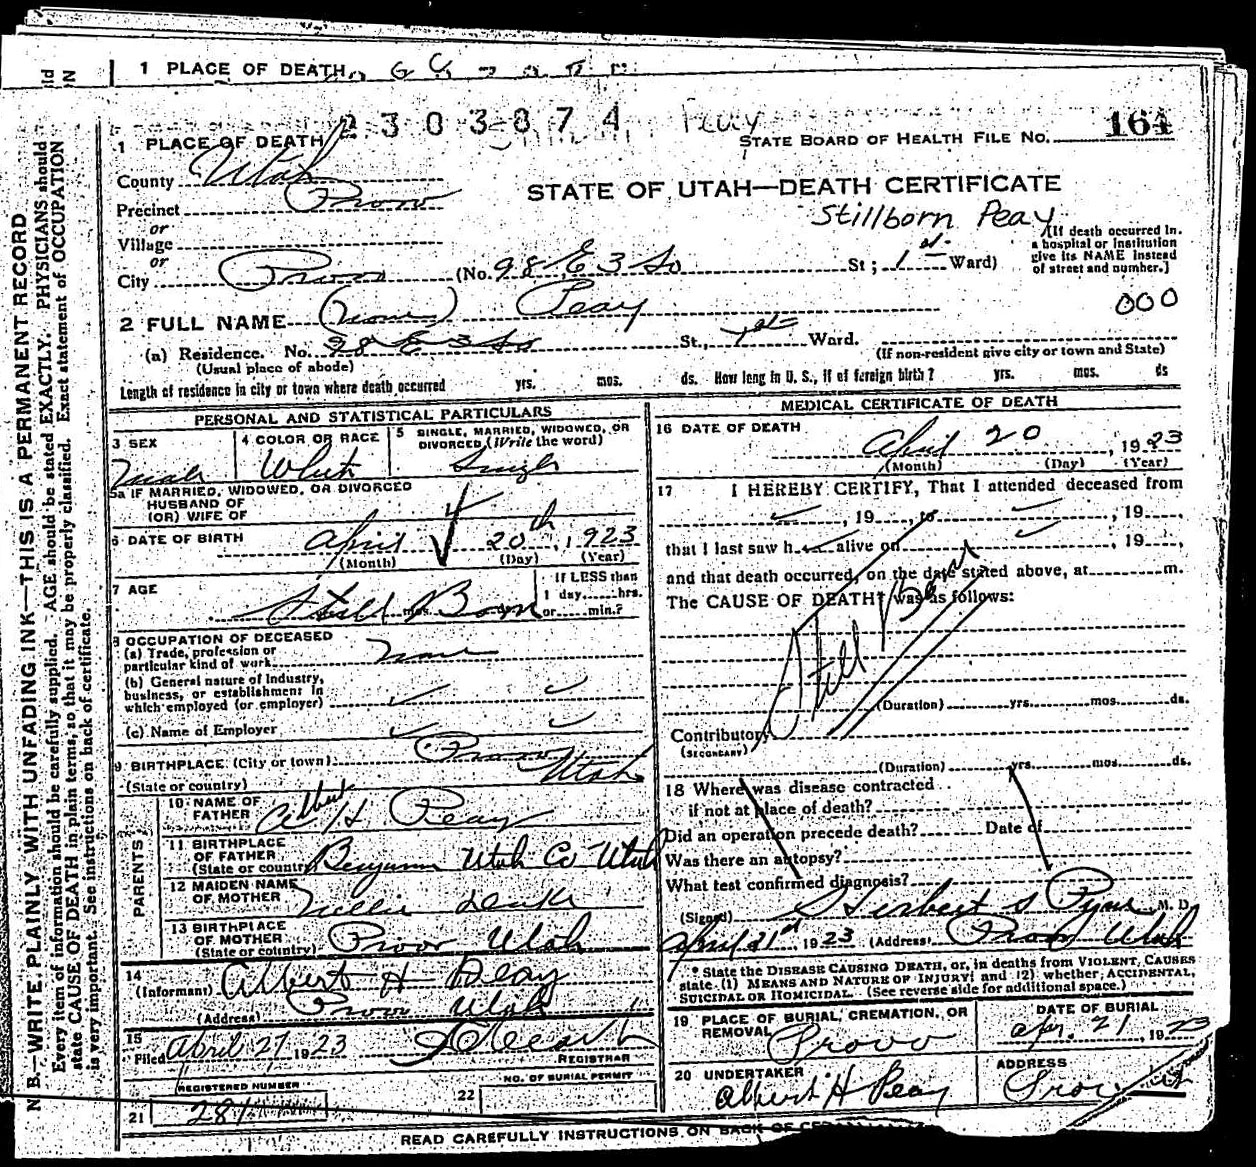 1 PLACE OF DEATH
2303874 Peay
1 PLACE OF DEATH
STATE BOARD OF HEALTH FILE No. 164
County Utah
STATE OF UTAH—DEATH CERTIFICATE
Precinct Provo
Stillborn Peay
or
Village
or
City Provo (No. 98 E 3 So St; 1st Ward)
(If death occurred in a hospital or institution give its NAME instead of street and number.)
000
2 FULL NAME (none) Peay
(a) Residence. No. 98 E 3 So St., 1st Ward.
(Usual place of abode) (If non-resident give city or town and State)
Length of residence in city or town where death occurred yrs. mos. ds. How long in U. S., if of foreign birth? yrs. mos. ds
PERSONAL AND STATISTICAL PARTICULARS
3 SEX
Male
4 COLOR OR RACE
White
5 SINGLE, MARRIED, WIDOWED, OR DIVORCED (Write the word)
Single
5a IF MARRIED, WIDOWED, OR DIVORCED
HUSBAND OF
(OR) WIFE OF
6 DATE OF BIRTH April 20th, 1923
(Month) (Day) (Year)
7 AGE
Still Born
mos.
IF LESS than
1 day, hrs.
or min.?
8 OCCUPATION OF DECEASED
(a) Trade, profession or
particular kind of work none
(b) General nature of Industry,
business, or establishment in
which employed (or employer)
(c) Name of Employer
9 BIRTHPLACE (City or town) Provo
(State or country) Utah
PARENTS
10 NAME OF
FATHER Albert H Peay
11 BIRTHPLACE
OF FATHER
(State or country) Benjamin Utah Co Utah
12 MAIDEN NAME
OF MOTHER Nellie
13 BIRTHPLACE
OF MOTHER
(State or country) Provo Utah
14
(Informant) Albert H Peay
(Address) Provo Utah
15
Filed April 27 1923
REGISTRAR
REGISTERED NUMBER
21 281
22 NO. OF BURIAL PERMIT
MEDICAL CERTIFICATE OF DEATH
16 DATE OF DEATH
April 20, 1923
(Month) (Day) (Year)
17 I HEREBY CERTIFY, That I attended deceased from
, 19 , to , 19 ,
that I last saw h alive on , 19 ,
and that death occurred, on the date stated above, at m.
The CAUSE OF DEATH* was as follows:
Still Born
(Duration) yrs. mos. ds.
Contributory
(SECONDARY)
(Duration) yrs. mos. ds.
18 Where was disease contracted
if not at place of death?
Did an operation precede death? Date of
Was there an autopsy?
What test confirmed diagnosis?
(Signed) Herbert S Pyne M. D.
April 21st 1923 (Address) Provo Utah
* State the DISEASE CAUSING DEATH, or, in deaths from VIOLENT CAUSES
state (1) MEANS AND NATURE OF INJURY; and (2) whether ACCIDENTAL,
SUICIDAL OR HOMICIDAL. (See reverse side for additional space.)
19 PLACE OF BURIAL, CREMATION, OR
REMOVAL
Provo
DATE OF BURIAL
Apr. 21, 1923
20 UNDERTAKER
Albert H Peay
ADDRESS
Provo Ut
READ CAREFULLY INSTRUCTIONS ON BACK OF
N. B.—WRITE PLAINLY WITH UNFADING INK—THIS IS A PERMANENT RECORD
Every item of information should be carefully supplied. AGE should be stated EXACTLY. PHYSICIANS should
state CAUSE OF DEATH in plain terms, so that it may be properly classified. Exact statement of OCCUPATION
is very important. See instructions on back of certificate.